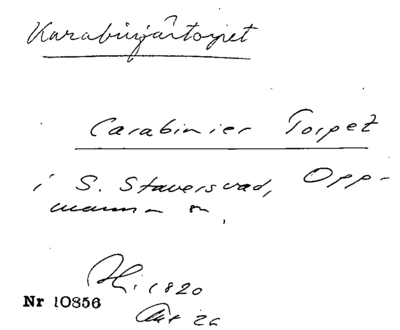 Karabinjärtorpet
Carabinier Torpet
i S. Staversvad, Opp-
manna sn.
Hi. 1820
Akt 26
Nr 10856